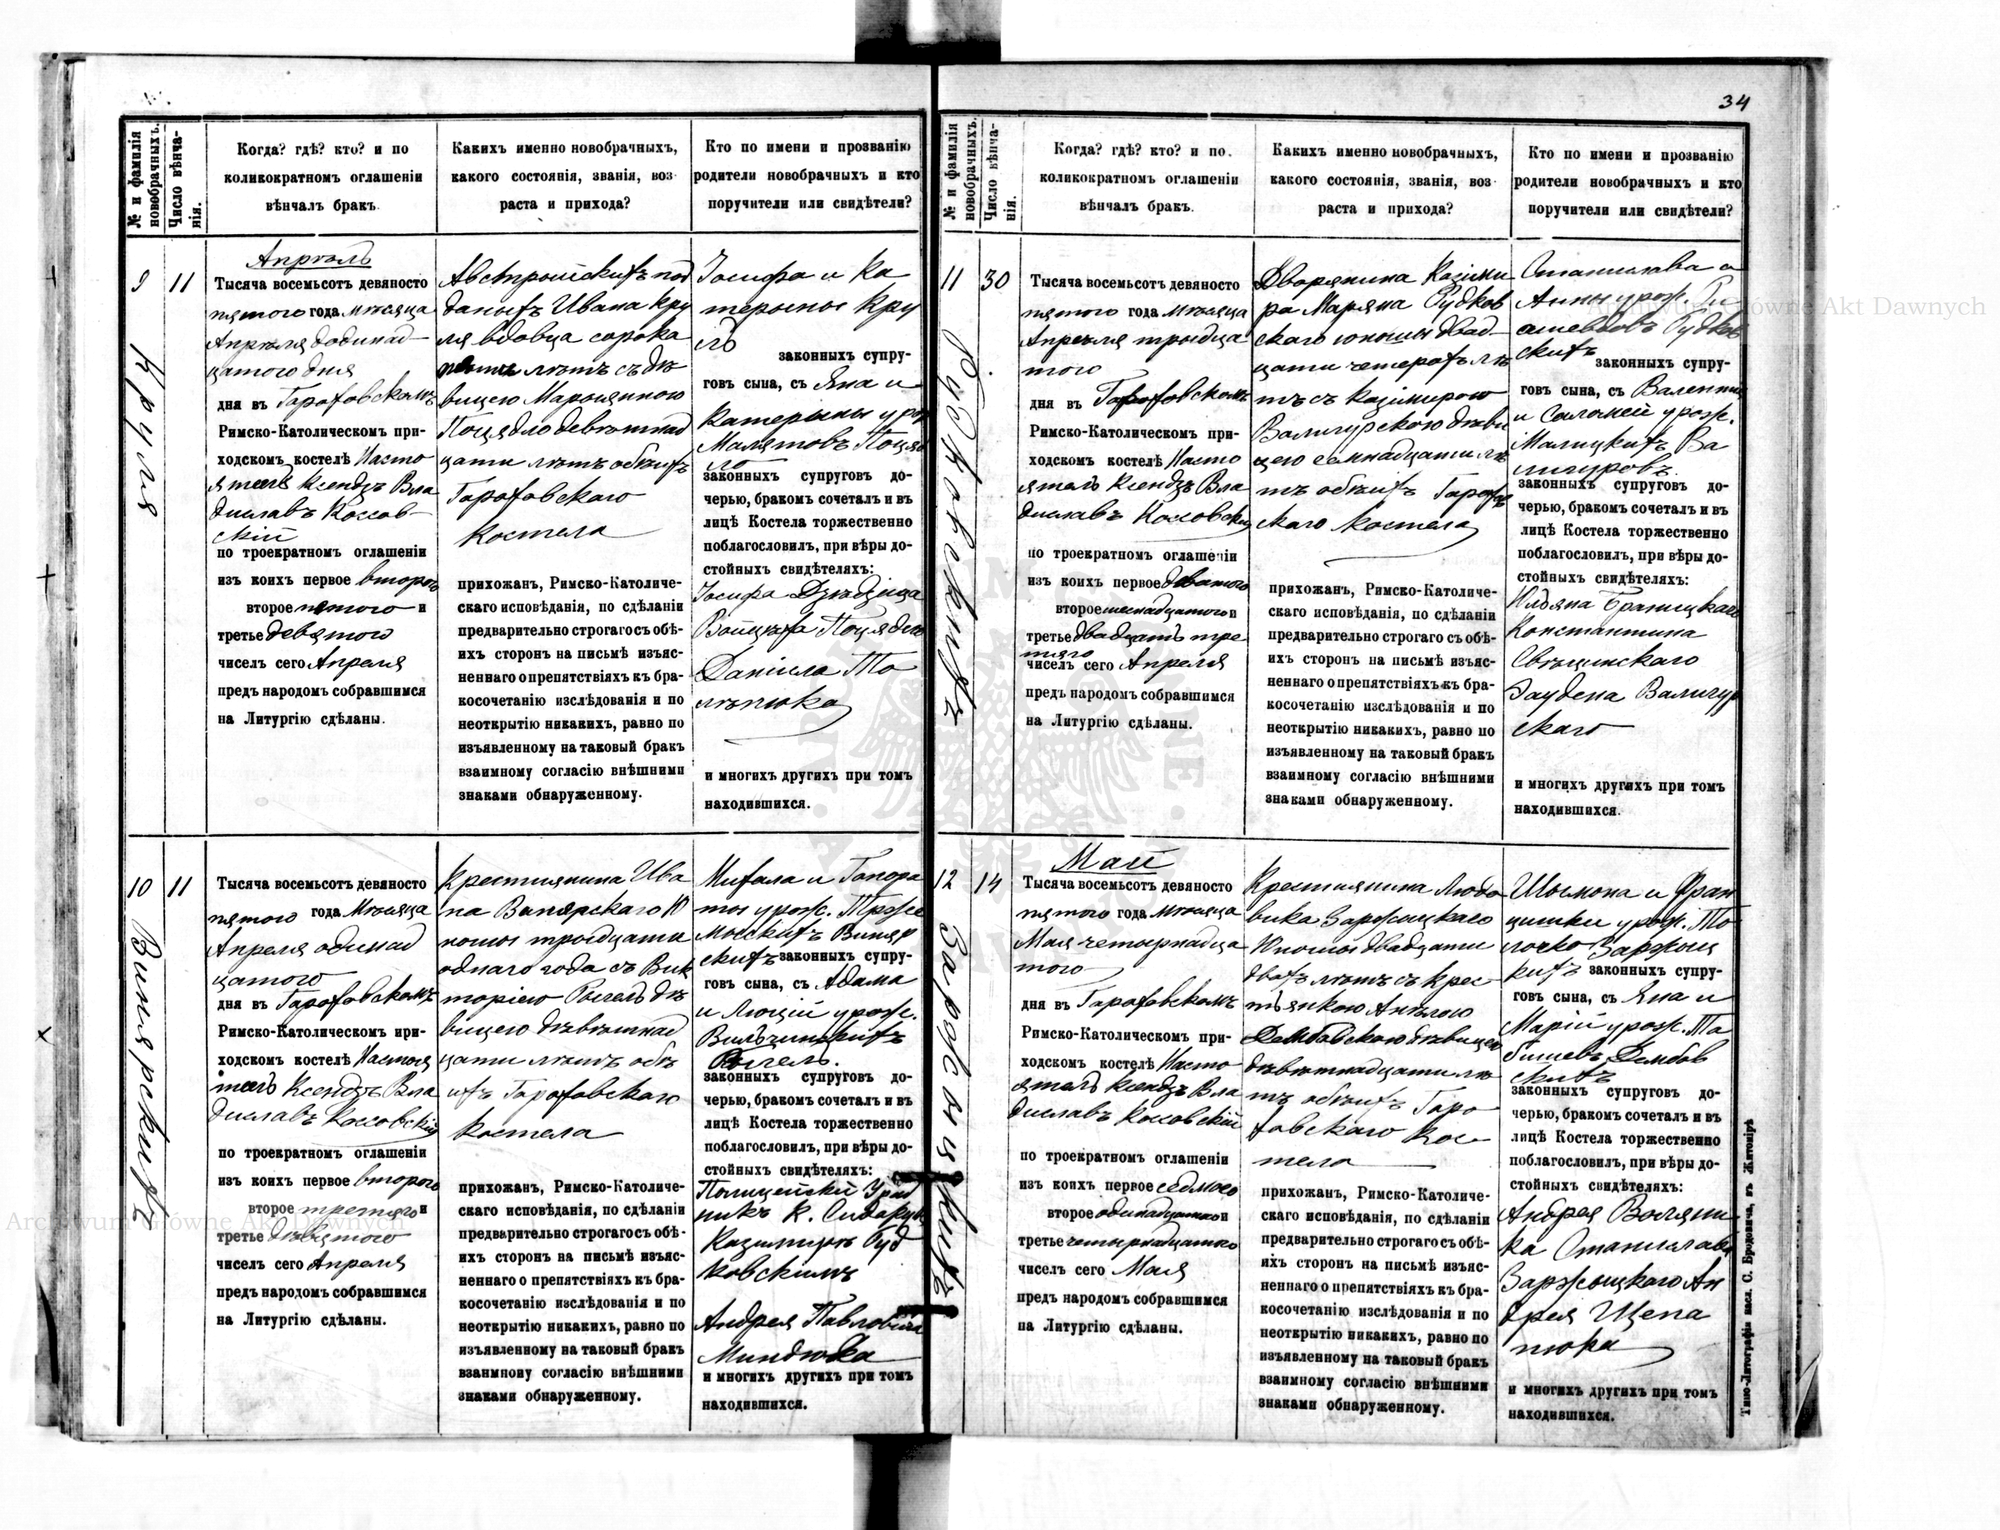 34
№ и фамилія новобрачныхъ.
Число вѣнча-
нія.
Когда? гдѣ? кто? и по
коликократномъ оглашеніи
вѣнчалъ бракъ.
Какихъ именно новобрачныхъ,
какого состоянія, званія, воз-
раста и прихода?
Кто по имени и прозванію
родители новобрачныхъ и кто
поручители или свидѣтели?
9
Круля
11
Апрѣль
Тысяча восемьсотъ девяносто
пятого года мѣсяца
Апрѣля
цатого дня
дня въ Гороховскомъ
Римско-Католическомъ при-
ходскомъ костелѣ Насто
ятель Ксендзъ Вла
диславъ Коссов-
скій
по троекратномъ оглашеніи
изъ коихъ первое второго
второе пятого и
третье девятого
чиселъ сего Апреля
предъ народомъ собравшимся
на Литургію сдѣланы.
Австрійскихъ под
даныхъ Ивана Кру
ля вдовца сорока
лѣтъ съ дѣ
вицею
девѣтнад
цати лѣтъ обѣихъ
Гороховского
костела
прихожан, Римско-Католиче-
скаго исповѣданія, по сдѣланіи
предварительно строгаго съ обѣ-
ихъ сторонъ на письмѣ изъяс-
неннаго о препятствіяхъ къ бра-
косочетанію изслѣдованія и по
неоткрытію никакихъ, равно по
изъявленному на таковый бракъ
взаимному согласію внѣшними
знаками обнаруженному.
Іосифа и Ка
терыны Кру
ль
законныхъ супру-
говъ сына, съ Яна и
Катерыны урож
Малятовъ
законныхъ супруговъ до-
черью, бракомъ сочеталъ и въ
лицѣ Костела торжественно
поблагословилъ, при вѣры до-
стойныхъ свидѣтеляхъ:
Іосифа
Войцѣха
Даніила По
лѣтюка
и многихъ другихъ при томъ
находившихся.
10
Винярскихъ
11
Тысяча восемьсотъ девяносто
пятого года Мѣсяца
Апреля одинад
цатого
дня въ Гороховскомъ
Римско-Католическомъ при-
ходскомъ костелѣ Настоя
тель Ксендзъ Вла
диславъ Коссовскій
по троекратномъ оглашеніи
изъ коихъ первое второго
второе третяго и
третье девятого
чиселъ сего Апреля
предъ народомъ собравшимся
на Литургію сдѣланы.
Крестиянина Ива
на Винярскаго Ю
ноши тридцати
однаго года съ Вик
торіею дѣ
вицею дѣвѣтнад
цати лѣтъ обѣ
ихъ Гороховского
костела
прихожан, Римско-Католиче-
скаго исповѣданія, по сдѣланіи
предварительно строгаго съ обѣ-
ихъ сторонъ на письмѣ изъяс-
неннаго о препятствіяхъ къ бра-
косочетанію изслѣдованія и по
неоткрытію никакихъ, равно по
изъявленному на таковый бракъ
взаимному согласію внѣшними
знаками обнаруженному.
Михала и Гонора
ты урож.
Виняр
скихъ законныхъ супру-
говъ сына, съ Адама
и Люціи урож.
законныхъ супруговъ до-
черью, бракомъ сочеталъ и въ
лицѣ Костела торжественно
поблагословилъ, при вѣры до-
стойныхъ свидѣтеляхъ:
Полицейскій Уряд
никъ К.
Казимиръ Руд
ковскимъ
Андрея Павловича
и многихъ другихъ при томъ
находившихся.
№ и фамилія новобрачныхъ.
Число вѣнча-
нія.
Когда? гдѣ? кто? и по
коликократномъ оглашеніи
вѣнчалъ бракъ.
Какихъ именно новобрачныхъ,
какого состоянія, званія, воз-
раста и прихода?
Кто по имени и прозванію
родители новобрачныхъ и кто
поручители или свидѣтели?
11
Рудковскихъ
30
Тысяча восемьсотъ девяносто
пятого года мѣсяца
Апреля тридца
того
дня въ Гороховскомъ
Римско-Католическомъ при-
ходскомъ костелѣ Насто
ятель Ксендзъ Вла
диславъ Коссовскій
по троекратномъ оглашеніи
изъ коихъ первое девятого
второе шеснадцатого и
третье двадцать тре
тяго
чиселъ сего Апреля
предъ народомъ собравшимся
на Литургію сдѣланы.
Дворянина Казими
ра Маряна Рудков
скаго юноши двад-
цати четырохъ лѣ
тъ съ Казимерою
Валигурскою дѣви
цею семнадцати лѣ
тъ обѣихъ Горохов
скаго Костела
прихожан, Римско-Католиче-
скаго исповѣданія, по сдѣланіи
предварительно строгаго съ обѣ-
ихъ сторонъ на письмѣ изъяс-
неннаго о препятствіяхъ къ бра-
косочетанію изслѣдованія и по
неоткрытію никакихъ, равно по
изъявленному на таковый бракъ
взаимному согласію внѣшними
знаками обнаруженному.
Станислава и
Анны урож.
Рудков
скихъ
законныхъ супру-
говъ сына, съ Валентія
и Саломеи урож.
Малицкихъ Ва
лигуровъ.
законныхъ супруговъ до-
черью, бракомъ сочеталъ и въ
лицѣ Костела торжественно
поблагословилъ, при вѣры до-
стойныхъ свидѣтеляхъ:
Юльяна Браницкаго
Константина
Свѣцинскаго
Валигур
скаго
и многихъ другихъ при томъ
находившихся.
12
Заржыцкихъ
14
Май
Тысяча восемьсотъ девяносто
пятого года мѣсяца
Мая четырнадца
того
дня въ Гороховскомъ
Римско-Католическомъ при-
ходскомъ костелѣ Насто
ятель Ксендзъ Вла
диславъ Коссовскій
по троекратномъ оглашеніи
изъ коихъ первое седмого
второе одинадцатого и
третье четырнадцатого
чиселъ сего Мая
предъ народомъ собравшимся
на Литургію сдѣланы.
Крестиянина Людо
вика Заржыцкаго
Юноши двадцати
двохъ лѣтъ съ Крес
тьянкою Анѣлою
Дембовскою дѣвицею
дѣвѣтнадцати лѣ
тъ обѣихъ Горо
ховскаго Кос-
тела
прихожан, Римско-Католиче-
скаго исповѣданія, по сдѣланіи
предварительно строгаго съ обѣ-
ихъ сторонъ на письмѣ изъяс-
неннаго о препятствіяхъ къ бра-
косочетанію изслѣдованія и по
неоткрытію никакихъ, равно по
изъявленному на таковый бракъ
взаимному согласію внѣшними
знаками обнаруженному.
Шымона и Фран
цишки урож. То
лочко Заржыц
кихъ законныхъ супру-
говъ сына, съ Яна и
Маріи урож.
Дембов
скихъ
законныхъ супруговъ до-
черью, бракомъ сочеталъ и въ
лицѣ Костела торжественно
поблагословилъ, при вѣры до-
стойныхъ свидѣтеляхъ:
Андрея Воляни
ка Станислава
Заржыцкаго Ан
дрея Щепа
нюка
и многихъ другихъ при томъ
находившихся.
Типо-Литографія насл. С. Бродовича, въ Житомірѣ
Archiwum Główne Akt Dawnych
Archiwum Główne Akt Dawnych